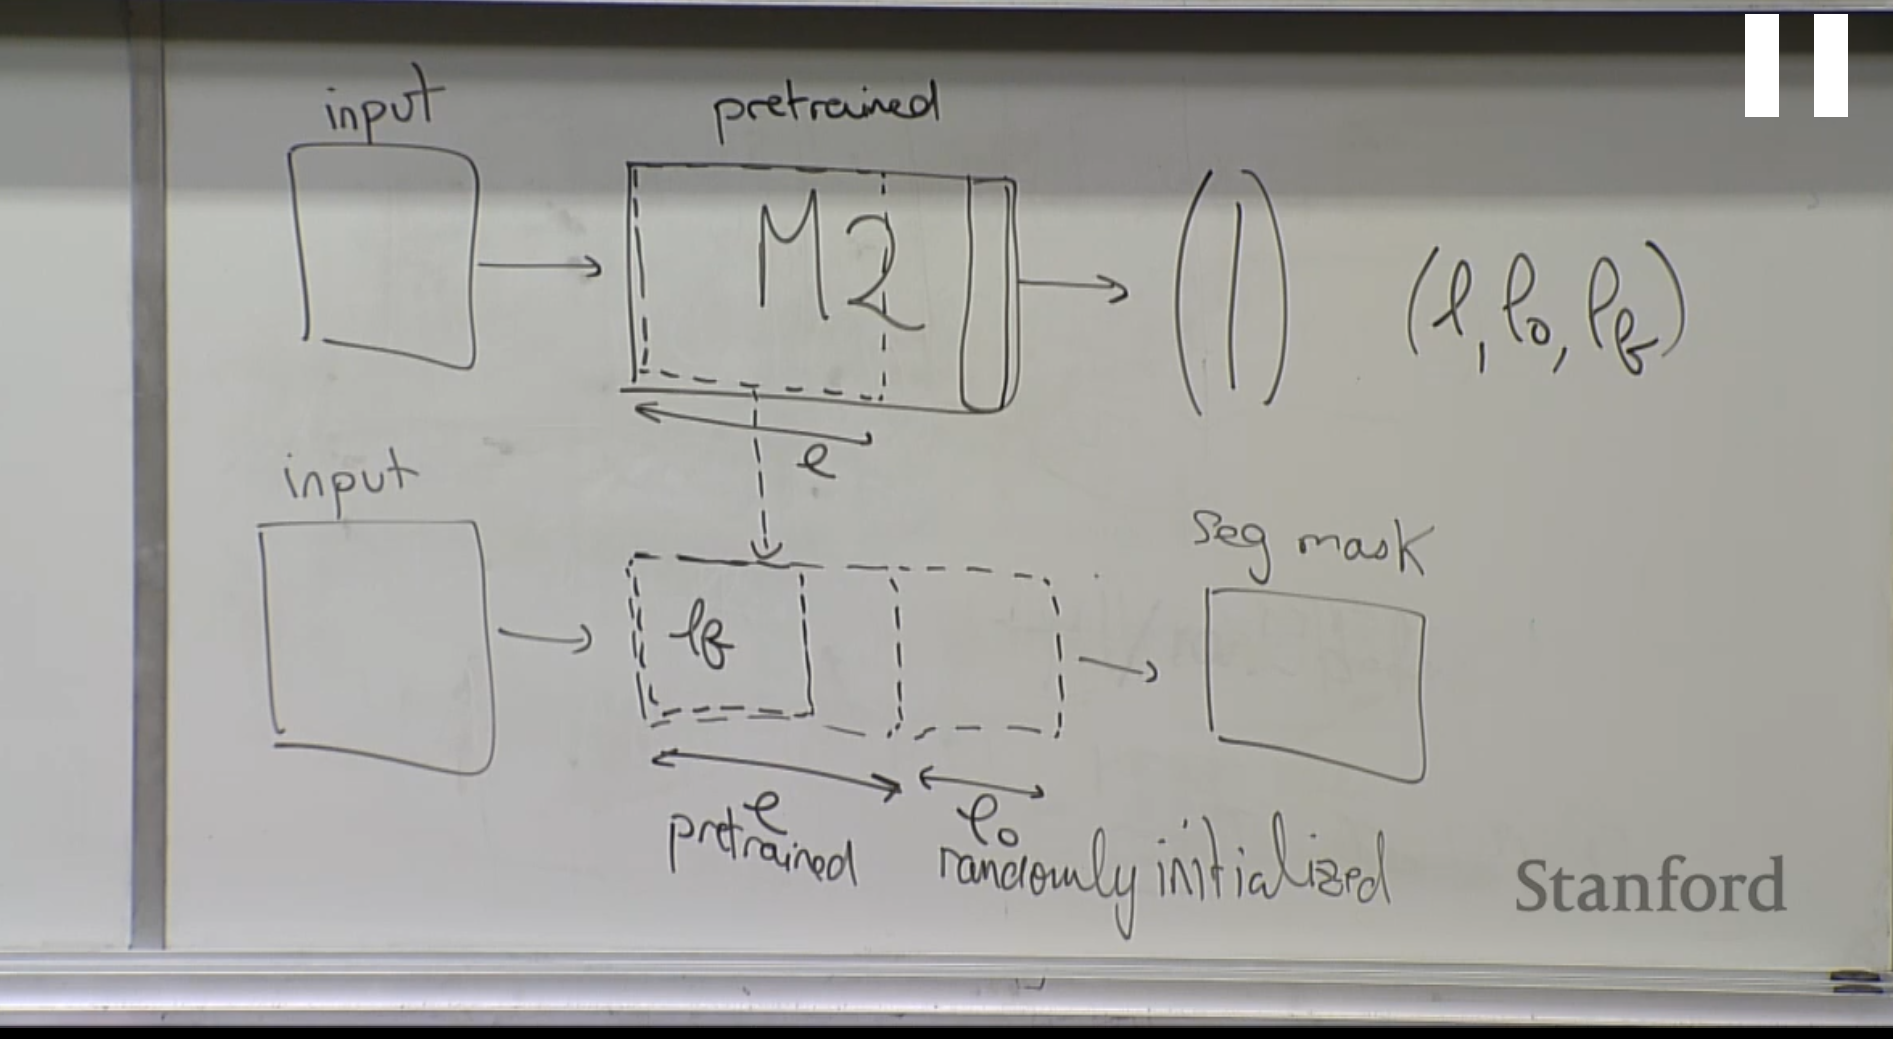 input
pretrained
M2
(l, l₀, l_f)
l
input
Seg mask
l_f
l
pretrained
l₀
randomly initialized
Stanford